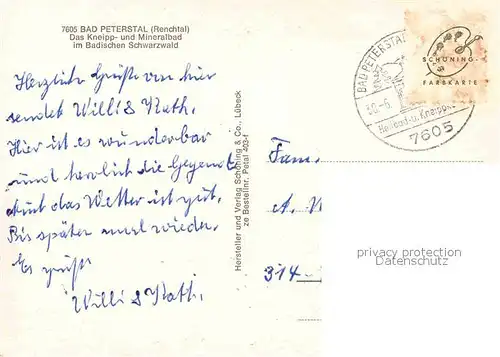 7605 BAD PETERSTAL (Renchtal)
Das Kneipp- und Mineralbad
im Badischen Schwarzwald
Herzliche Grüße von hier
sendet Willi & Kath.
Hier ist es wunderbar
und herrlich die Gegend
Auch das Wetter ist gut.
Bis später mal wieder.
Es grüßt
Willi & Kath.
Hersteller und Verlag Schöning & Co., Lübeck
Bestellnr. Petal
BAD PETERSTAL
30.-6.
Heilbad-u. Kneipp
7605
SCHÖNING-
FARBKARTE
Fam.
A.
314-
privacy protection
Datenschutz